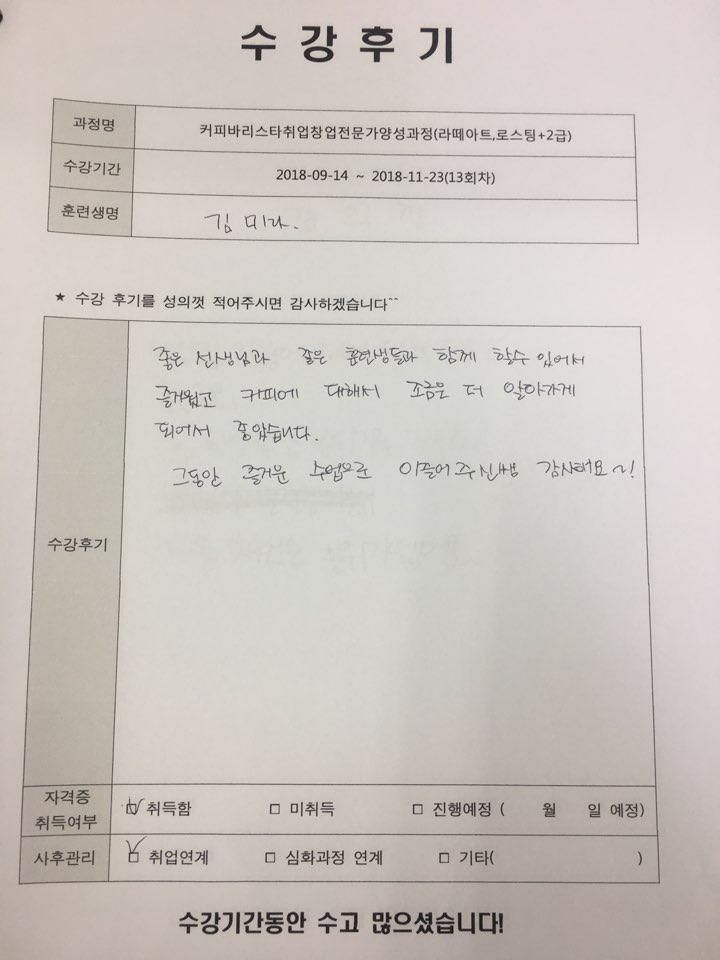 수강후기
과정명 커피바리스타취업창업전문가양성과정(라떼아트,로스팅+2급)
수강기간 2018-09-14 ~ 2018-11-23(13회차)
훈련생명 김미라.
★ 수강 후기를 성의껏 적어주시면 감사하겠습니다^^
수강후기
좋은 선생님과 좋은 훈련생들과 함께 할수 있어서
즐거웠고 커피에 대해서 조금은 더 알아가게
되어서 좋았습니다.
그동안 즐거운 수업으로 이끌어주신쌤 감사해요~!
자격증 취득여부 ☑ 취득함 □ 미취득 □ 진행예정 ( 월 일 예정)
사후관리 ☑ 취업연계 □ 심화과정 연계 □ 기타( )
수강기간동안 수고 많으셨습니다!